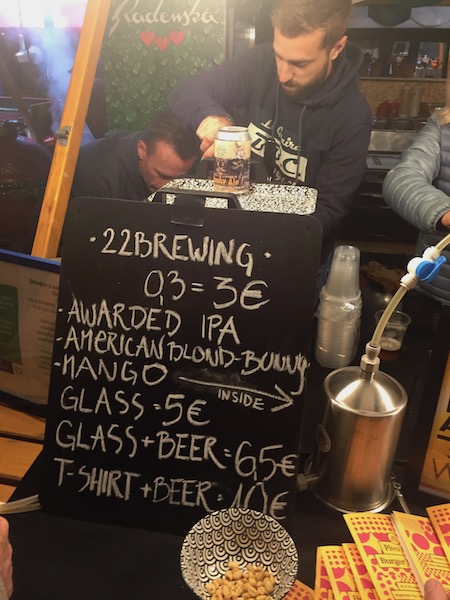 Radenska
B.C.
· 22BREWING ·
0,3 = 3€
- AWARDED IPA
- AMERICAN BLOND-BUNNY
- MANGO
INSIDE
GLASS = 5€
GLASS + BEER = 6,5€
T-SHIRT + BEER = 10€
Pivo
Burger